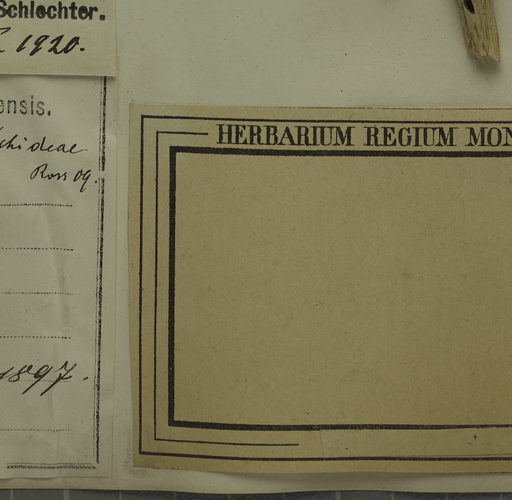 Schlechter.
1920.
ensis.
chideae
Ross 09.
1897.
HERBARIUM REGIUM MON